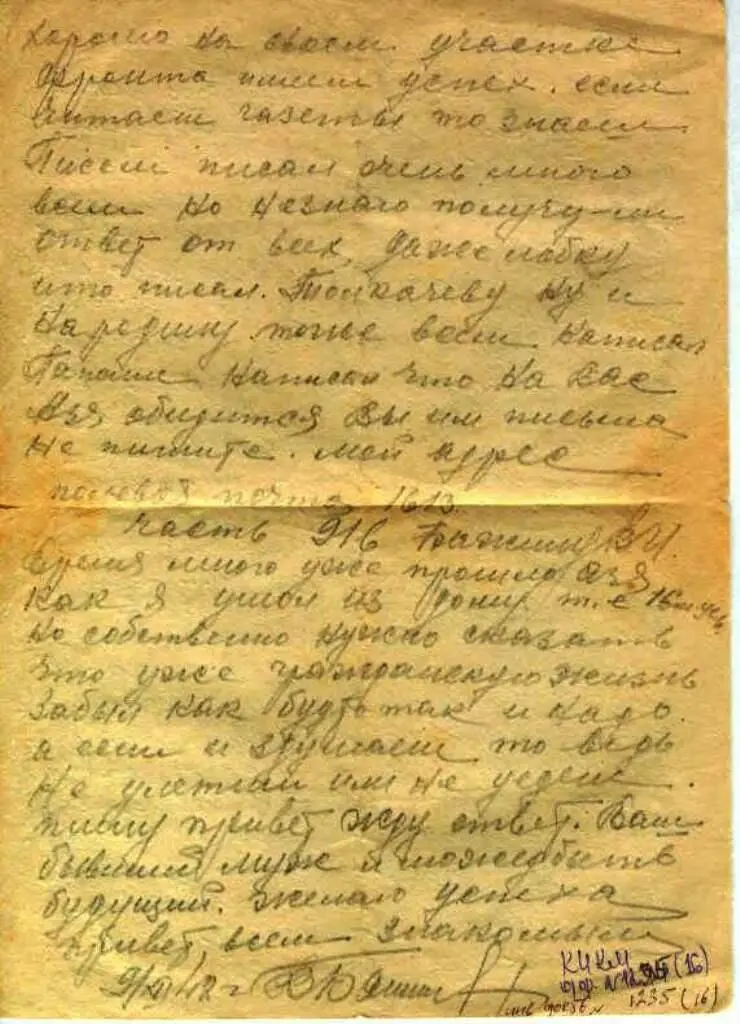 хорошо на своем участке
фронта имеем успех. если
читаеш газеты то знаеш
Писем писал очень много
всем но незнаю получу-ли
ответ от всех, даже
что писал. Толкачеву Ну и
тоже всем написал
Папаши написал что на вас
Ася обидится Вы им письма
не пишите. мой адрес
полевая почта 1613
часть 916 Бажину В И.
Время много уже прошло Ася
как я ушол из дому т.е 16
но собственно нужно сказать
что уже гражданскую жизнь
забыл как будто так и надо.
а если и здумаеш то ведь
не улетиш или не уедеш.
пишу привет жду ответ. Ваш
бывший муж и можебыть
будущий. желаю успеха
привет, всем знакомым
42 г
ККМ
(16)
1235 (16)